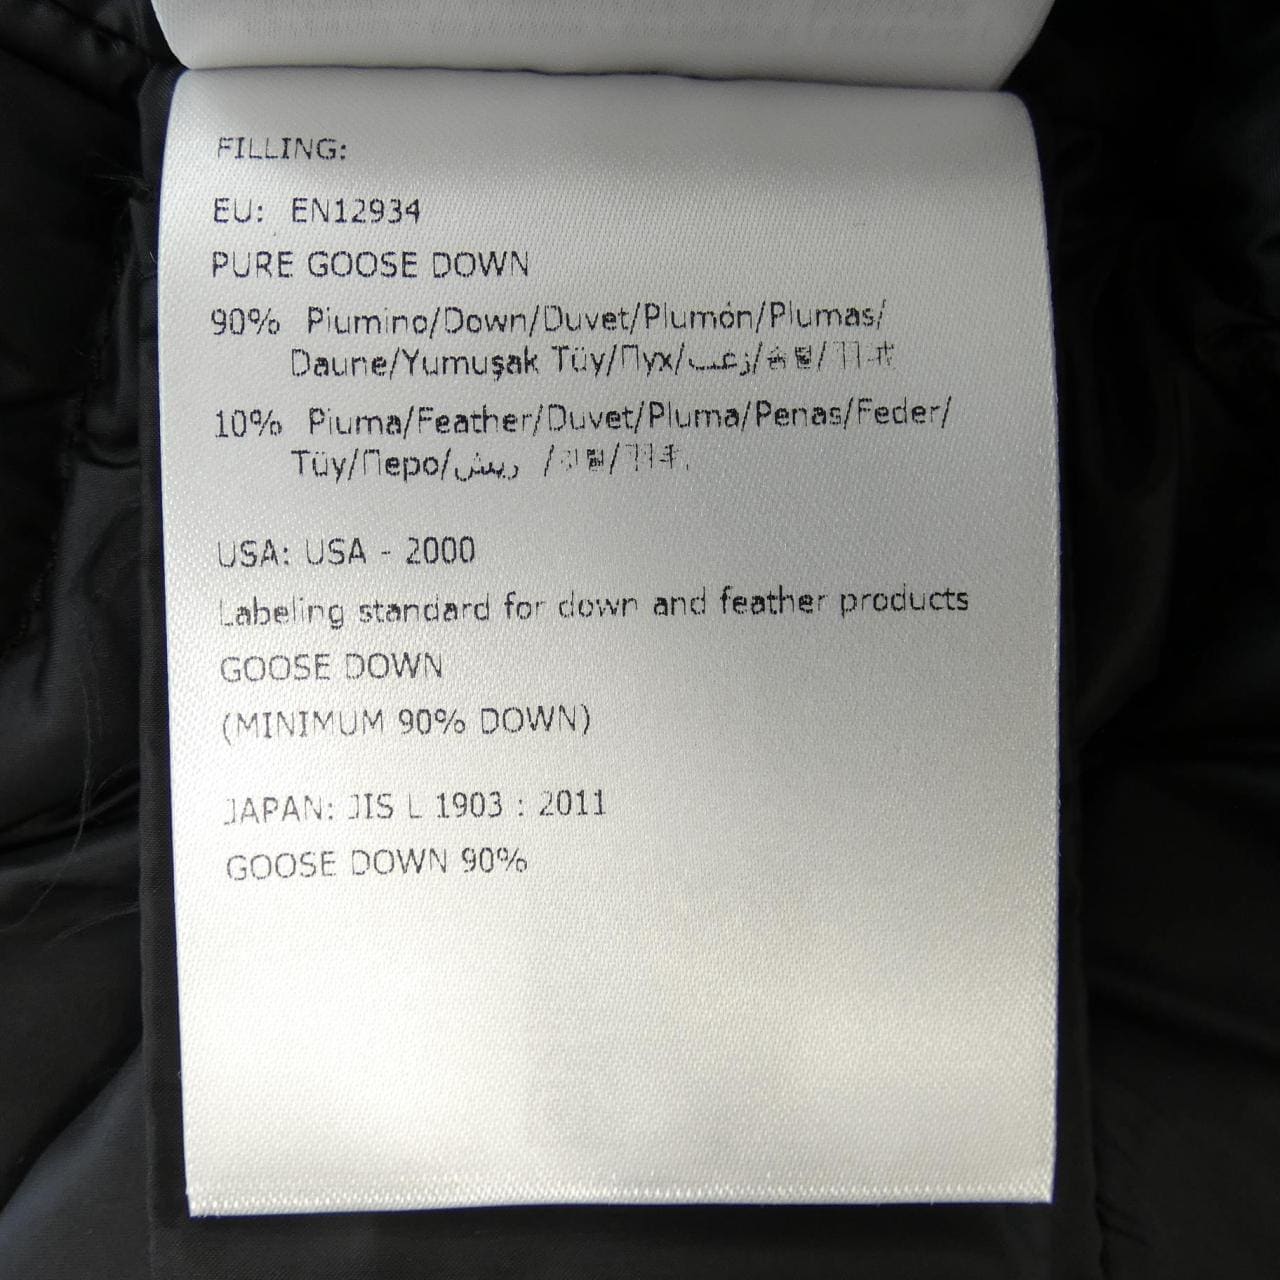 FILLING:
EU: EN12934
PURE GOOSE DOWN
90% Piumino/Down/Duvet/Plumón/Plumas/
Daune/Yumuşak Tüy/Пух/زغب/
10% Piuma/Feather/Duvet/Pluma/Penas/Feder/
Tüy/Перо/ريش /
USA: USA - 2000
Labeling standard for down and feather products
GOOSE DOWN
(MINIMUM 90% DOWN)
JAPAN: JIS L 1903 : 2011
GOOSE DOWN 90%